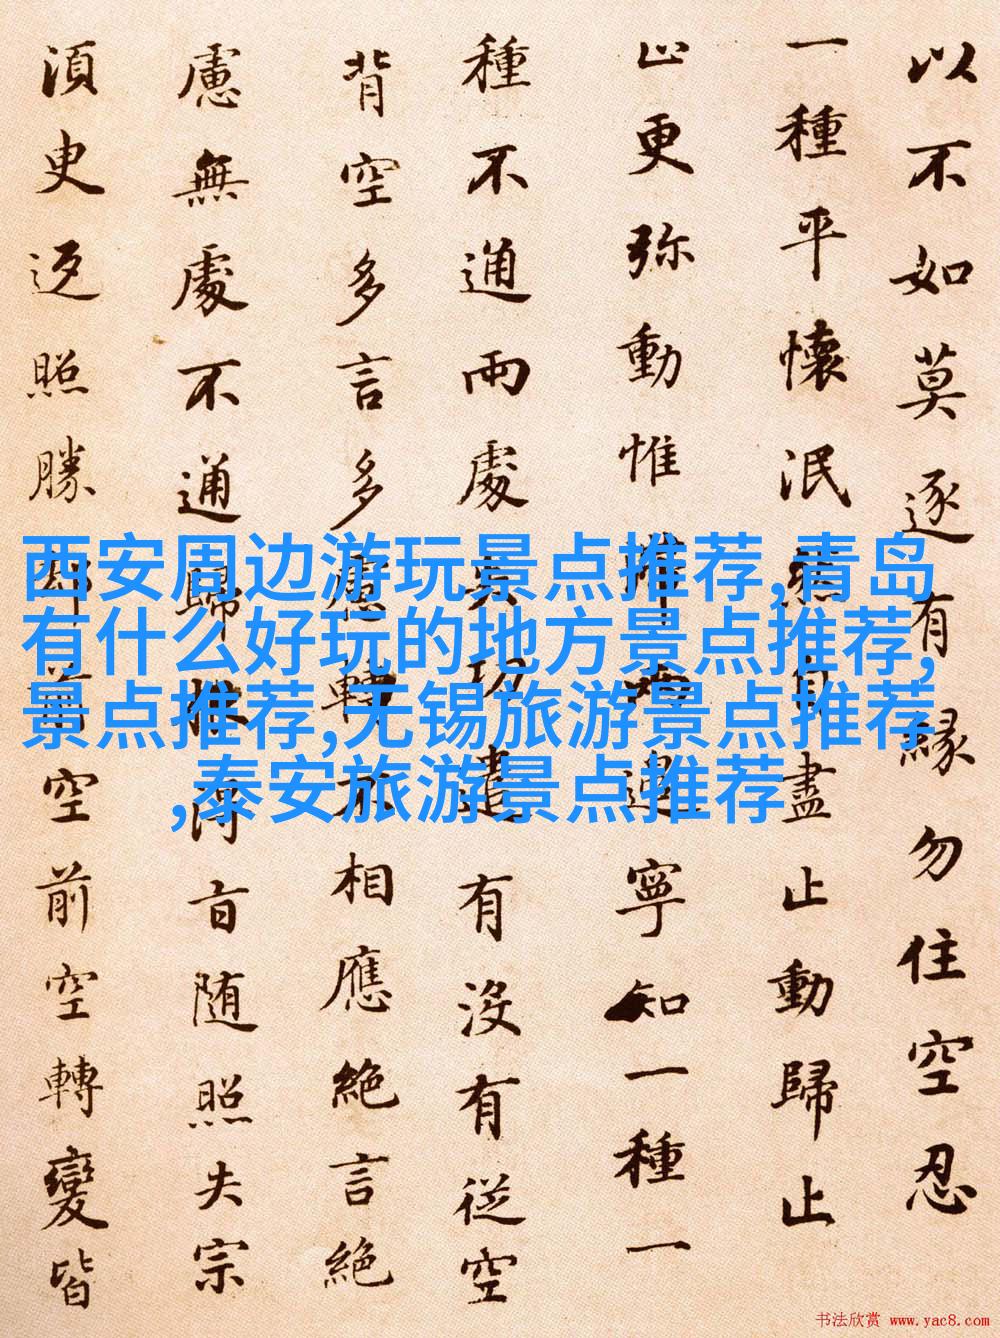 以不如莫逐有緣勿住空忍
一種平懷泯然自盡止動歸止
止更弥動惟滯兩邊寧知一種一
種不通兩處失功遣有沒有従空
背空多言多慮轉不相應絶言絶
慮無處不通歸根得旨随照失宗
須臾返照勝却前空前空轉變皆
西安周边游玩景点推荐,青岛
有什么好玩的地方景点推荐,
景点推荐,无锡旅游景点推荐
,泰安旅游景点推荐
书法欣赏 www.yac8.com